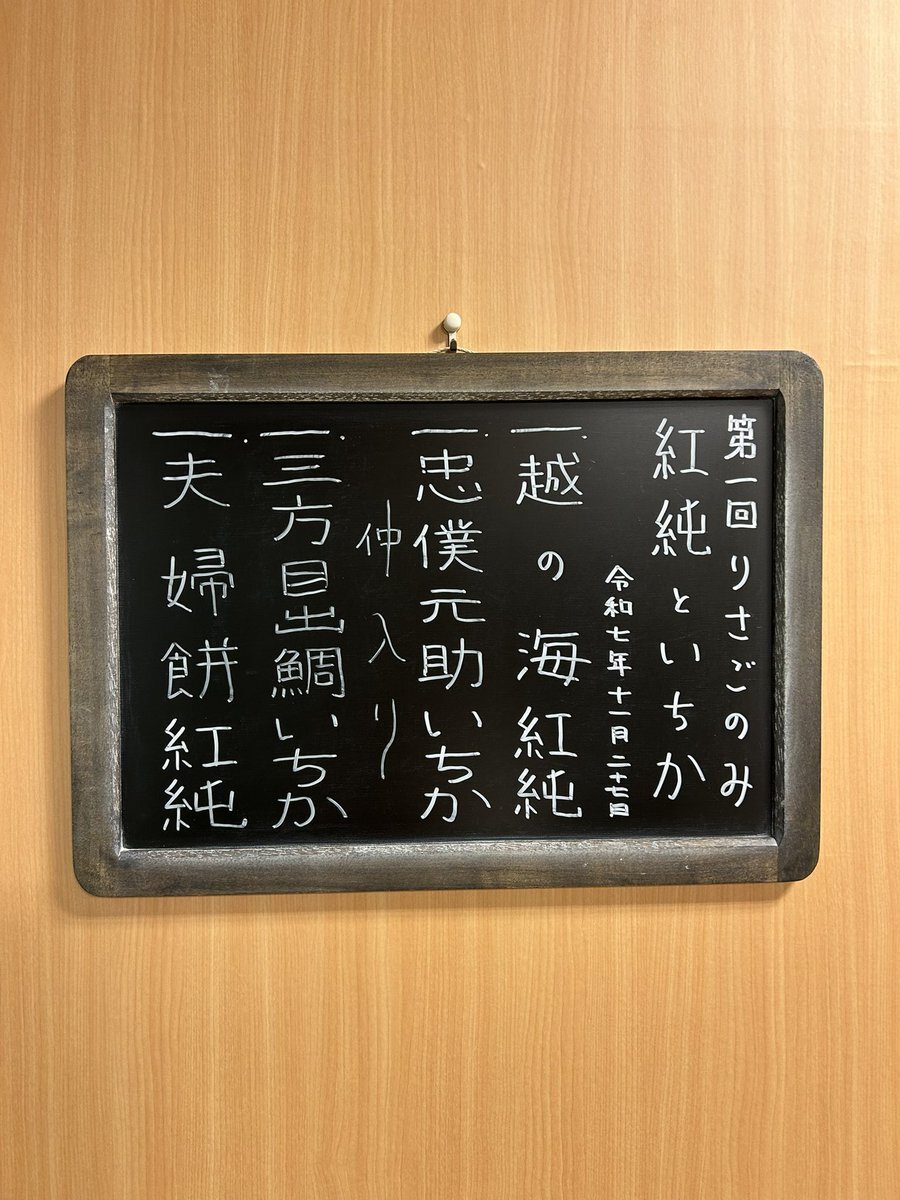 第一回りさごのみ
紅純といちか
令和七年十一月二十七日
一、越の海 紅純
一、忠僕元助 いちか
仲入り
一、三方目出鯛 いちか
一、夫婦餅 紅純